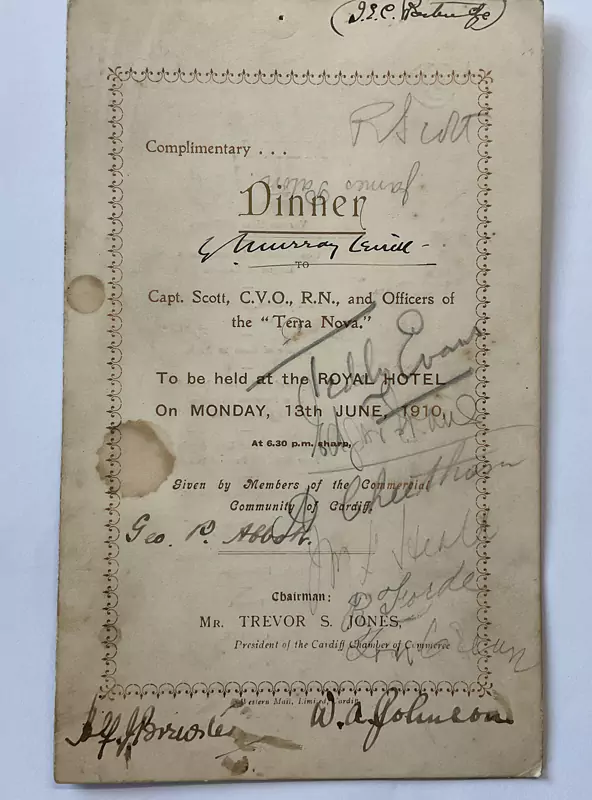 R Scott
Complimentary . . .
James
Dinner
Murray
TO
Capt. Scott, C.V.O., R.N., and Officers of
the "Terra Nova."
Teddy Evans
To be held at the ROYAL HOTEL
On MONDAY, 13th JUNE, 1910,
At 6.30 p.m. sharp,
Given by Members of the Commercial
Community of Cardiff.
Cheetham
Geo. P. Abbott.
Chairman:
R Forde
MR. TREVOR S. JONES,
President of the Cardiff Chamber of Commerce
Western Mail, Limited, Cardiff
Alf J Brewster
W. A. Johnson